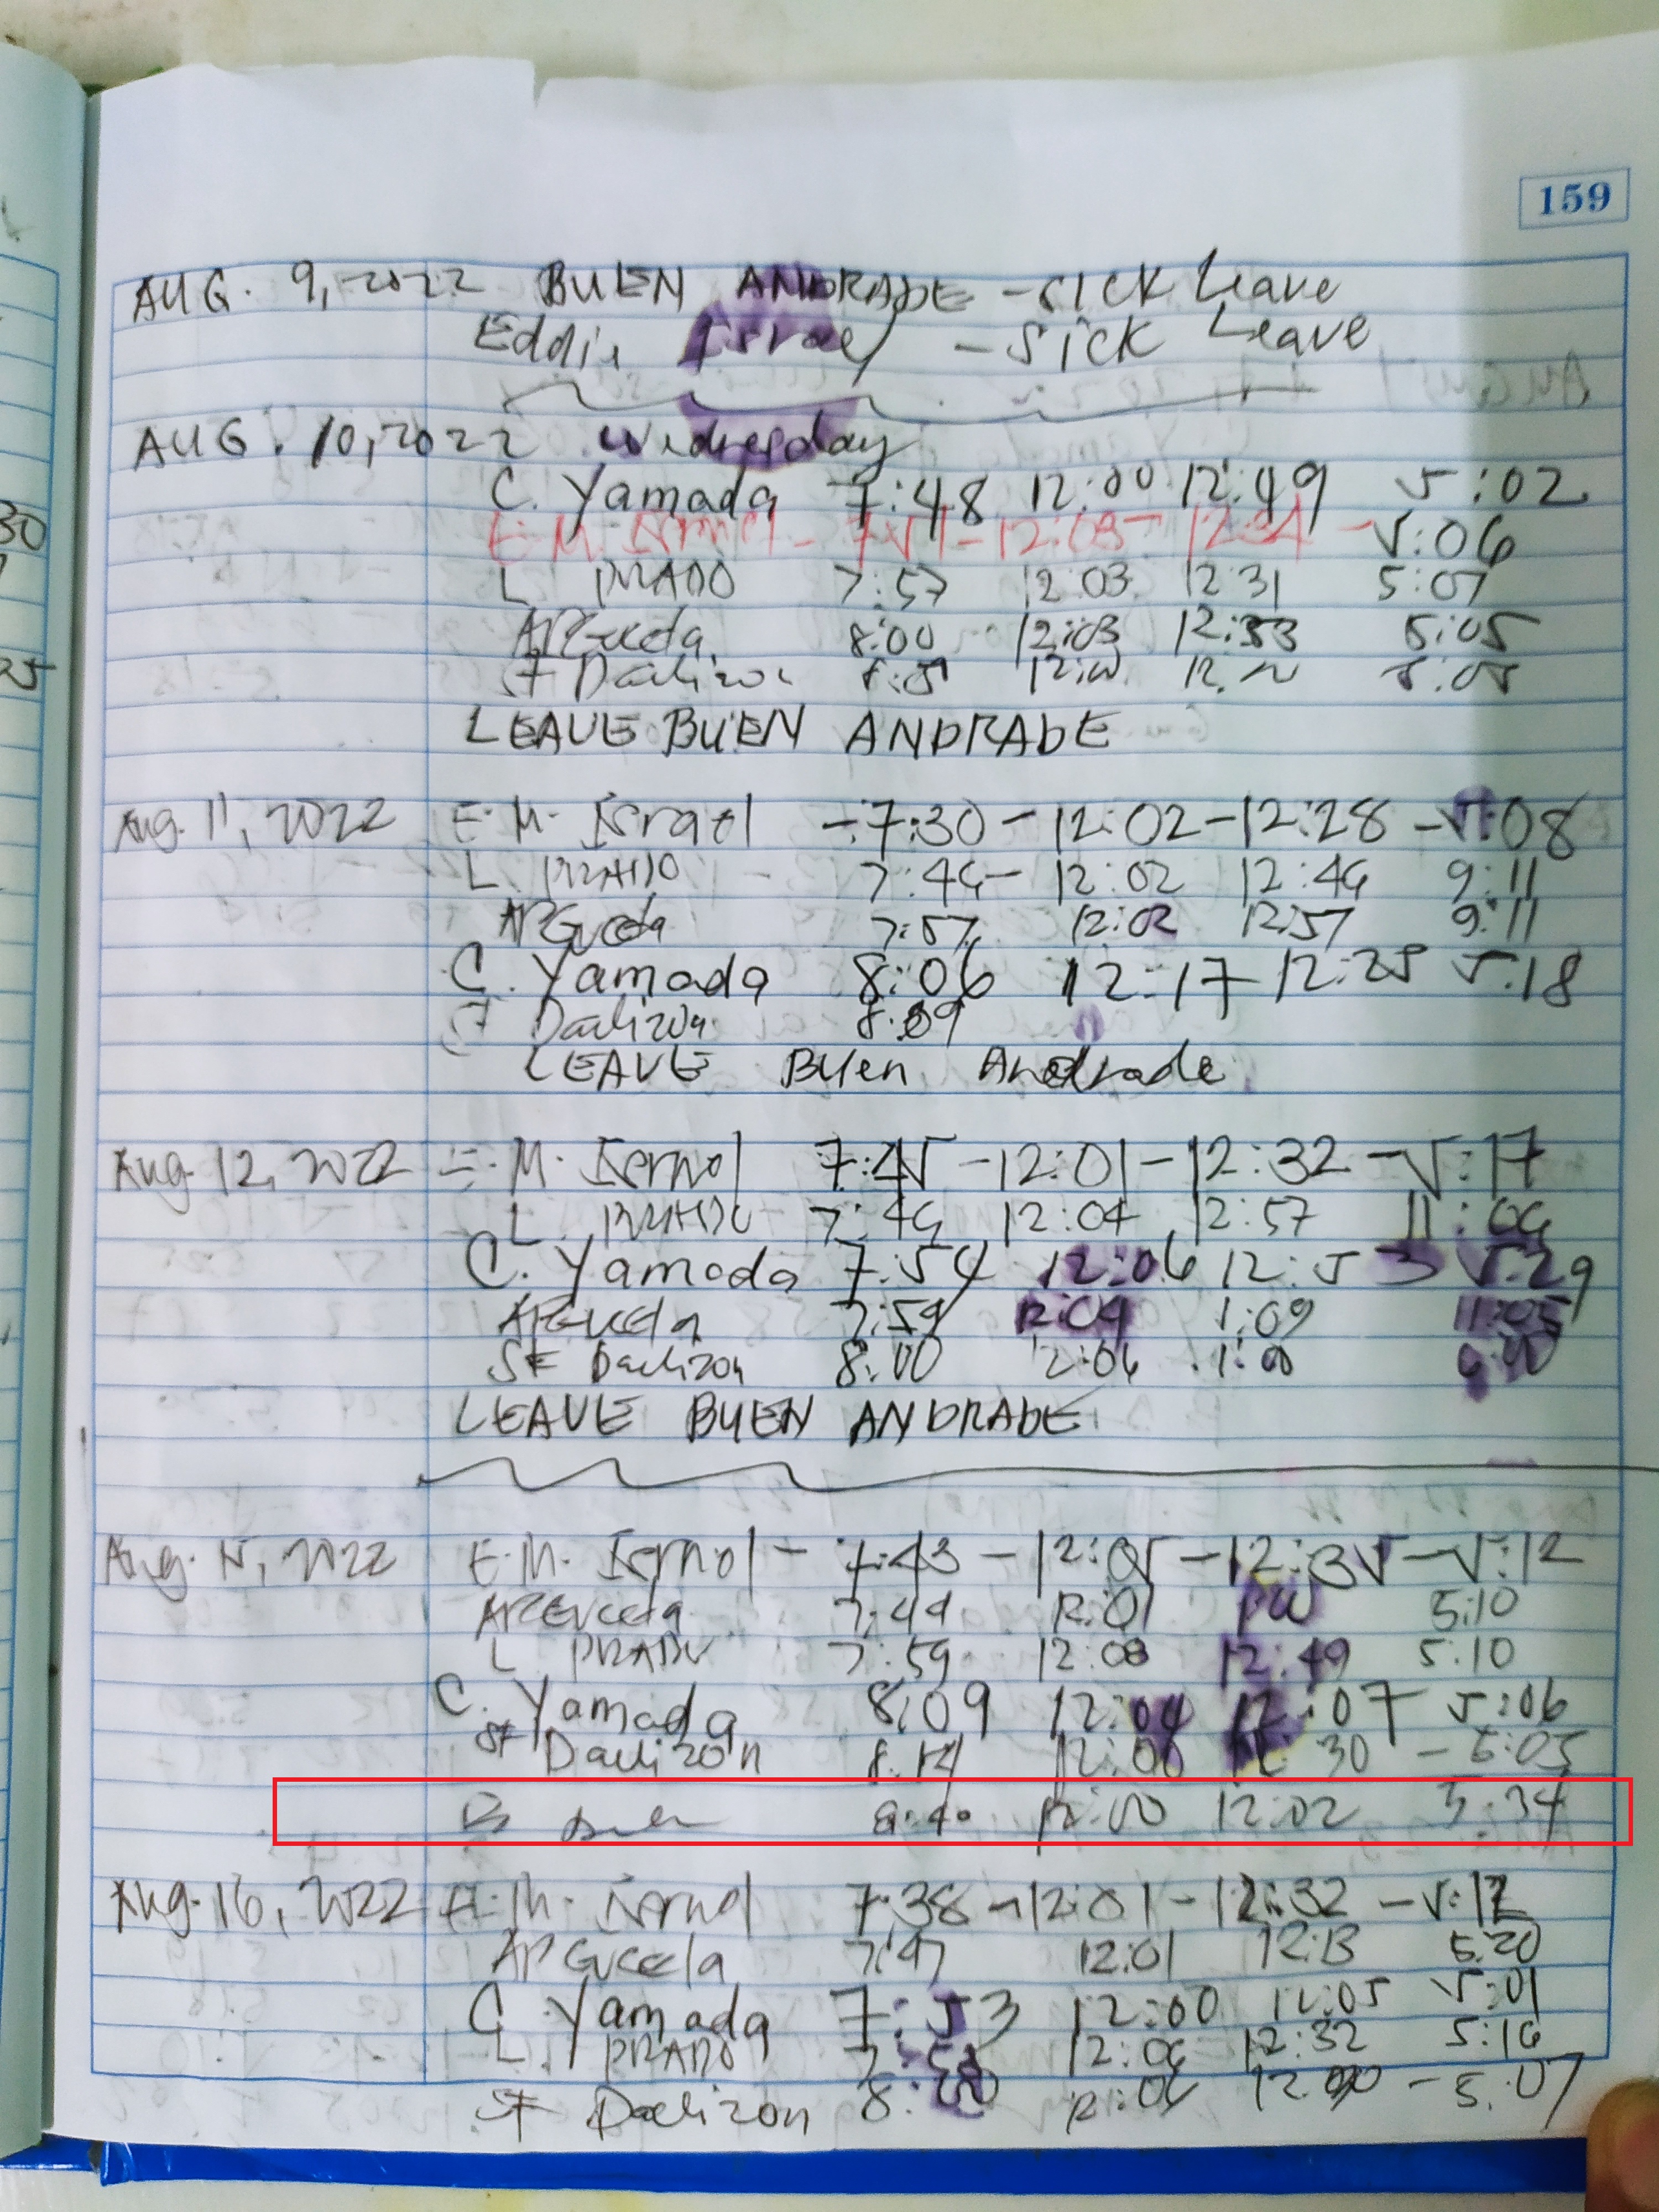 159
AUG. 9, 2022 BUEN ANDRADE - sick Leave
Eddie Israel - Sick Leave
AUG. 10, 2022 Wednesday
C. Yamada 7:48 12:00 12:49 5:02
E.M. Israel - 7:51 - 12:03 - 12:34 - 5:06
L PRADO 7:57 12:03 12:31 5:07
8:00 12:03 12:33 5:05
SF Daelizon 5:05
LEAVE BUEN ANDRADE
Aug. 11, 2022 E.M. Israel - 7:30 - 12:02 - 12:28 - 5:08
L. PRADO 7:46 - 12:02 12:46 9:11
7:57 12:02 12:57 9:11
C. Yamada 8:06 12:17 12:25 5:18
SF Daelizon 8:09
LEAVE Buen Andrade
Aug. 12, 2022 E.M. Israel 7:45 - 12:01 - 12:32 - 5:17
L. PRADO 7:46 12:04 12:57 11:06
C. Yamada 7:54 12:06 12:53 5:29
7:59 12:04 1:09 11:05
SF Daelizon 8:00 12:06 1:00
LEAVE BUEN ANDRADE
Aug. 15, 2022 E.M. Israel - 7:43 - 12:05 - 12:35 - 5:12
7:49 12:01 5:10
L PRADO 7:59 12:08 12:49 5:10
C. Yamada 8:09 12:04 12:07 5:06
SF Daelizon 8:14 12:00 12:30 - 5:05
12:00 12:02 5:34
Aug. 16, 2022 E.M. Israel 7:38 - 12:01 - 12:32 - 5:12
7:47 12:01 12:13 5:20
C. Yamada 7:53 12:00 12:05 5:01
L. PRADO 12:06 12:32 5:16
SF Daelizon 8:00 12:06 - 5:07